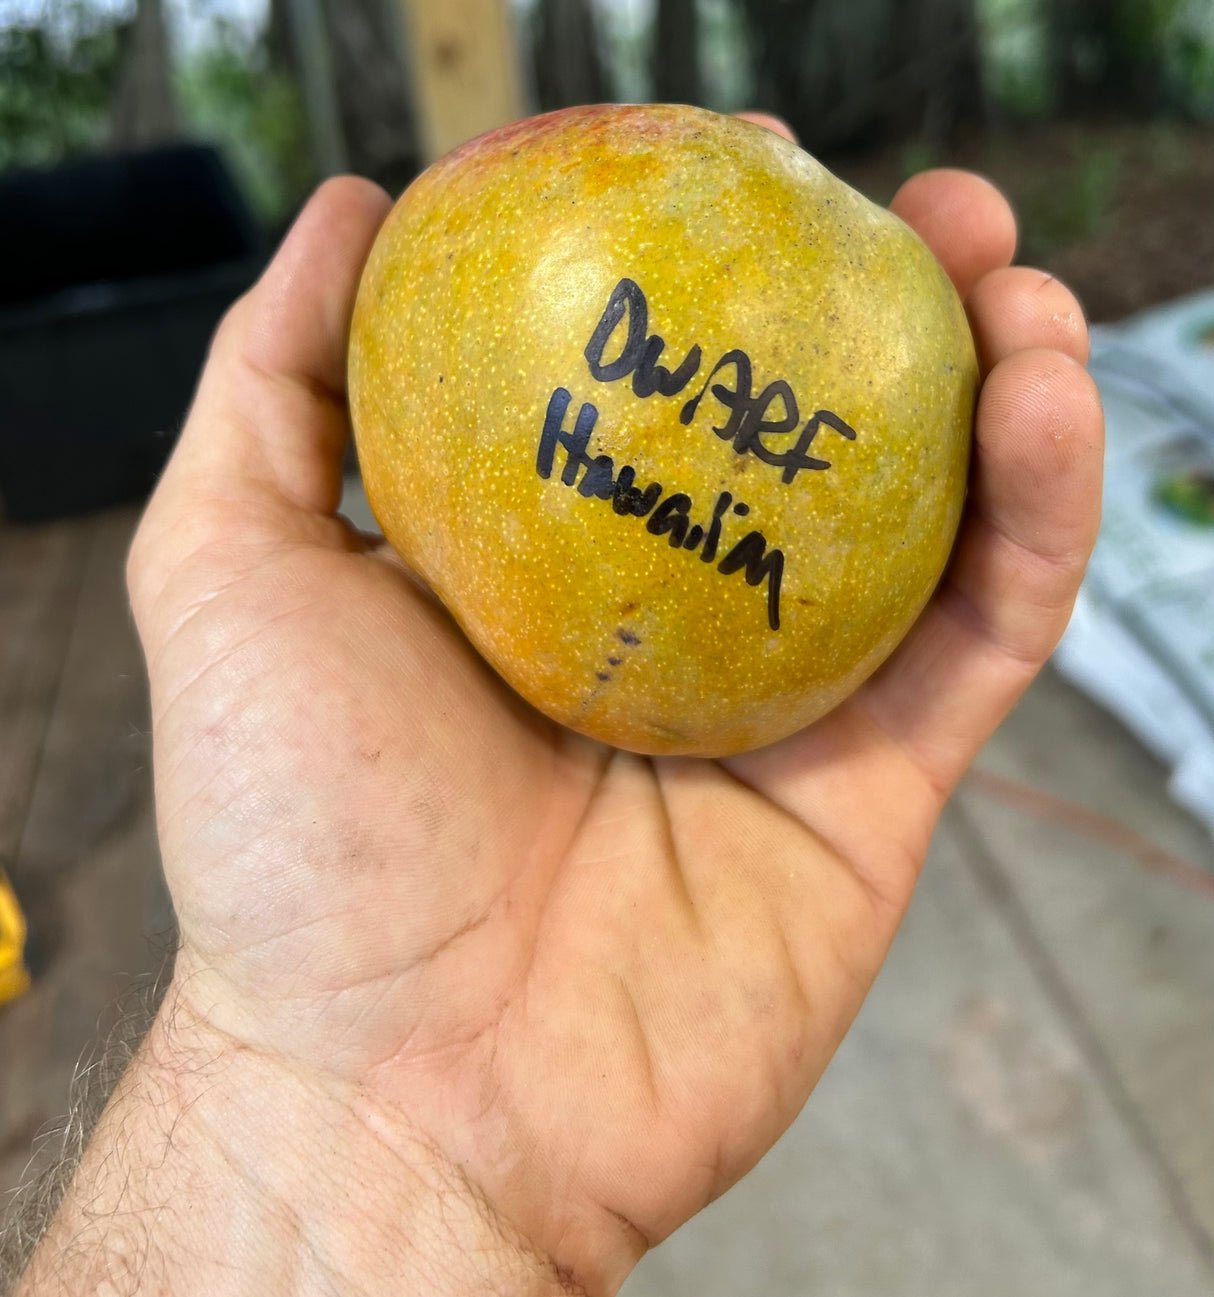 DWARF
Hawaiian